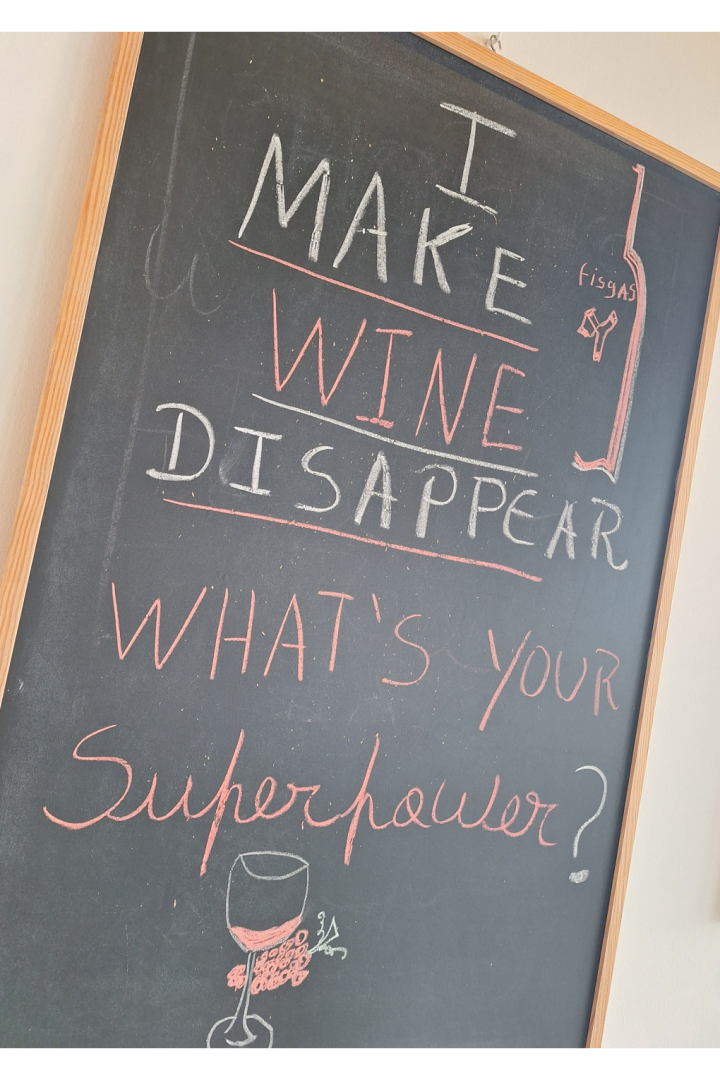 I
MAKE
WINE
DISAPPEAR
WHAT'S YOUR
Superpower?
fisgas